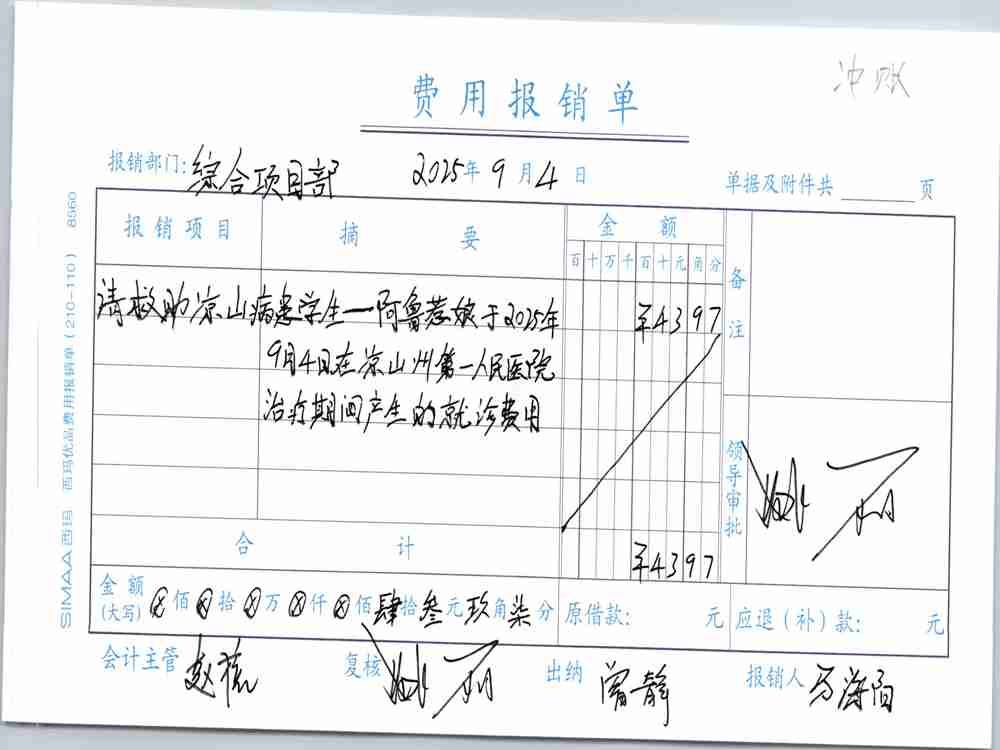 冲账
费用报销单
报销部门: 综合项目部 2025年9月4日 单据及附件共 页
报销项目 摘要 金额 备注
百十万千百十元角分
请救助凉山病患学生一阿鲁惹娘于2025年 ¥4397
9月4日在凉山州第一人民医院
治疗期间产生的就诊费用
领导审批
合计 ¥4397
金额(大写) ⊗佰⊗拾⊗万⊗仟⊗佰肆拾叁元玖角柒分 原借款: 元 应退(补)款: 元
会计主管 复核 出纳 曾静 报销人 马海阳
SIMAA西玛 西玛优品费用报销单(210-110) 8560